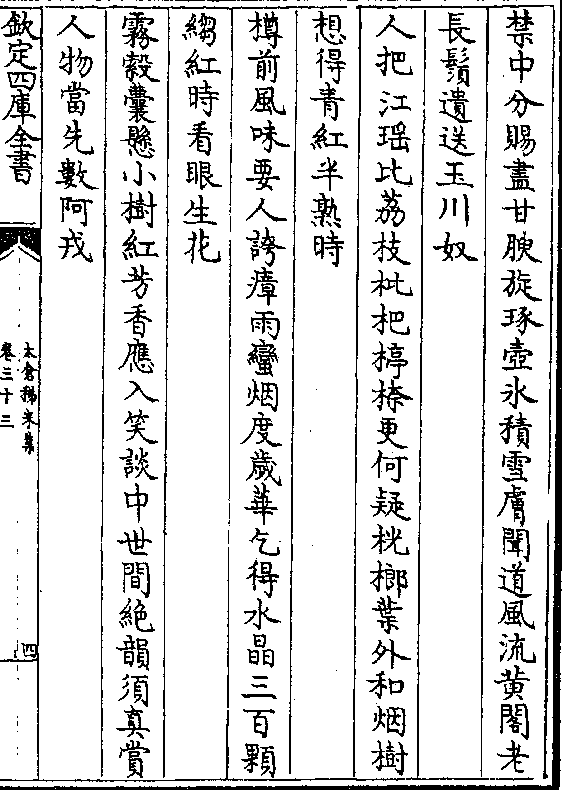 禁中分賜盡甘腴旋琢壺氷積雪膚聞道風流黄閣老
長鬚遺送玉川奴
人把江瑶比荔枝枇把楟柰更何疑桄榔葉外和烟樹
想得青紅半熟時
樽前風味要人誇瘴雨蠻烟度歳華乞得水晶三百顆
縐紅時看眼生花
霧縠囊懸小樹紅芳香應入笑談中世間絶韻須真賞
人物當先數阿戎
欽定四庫全書
太倉稊米集
卷三十三
四